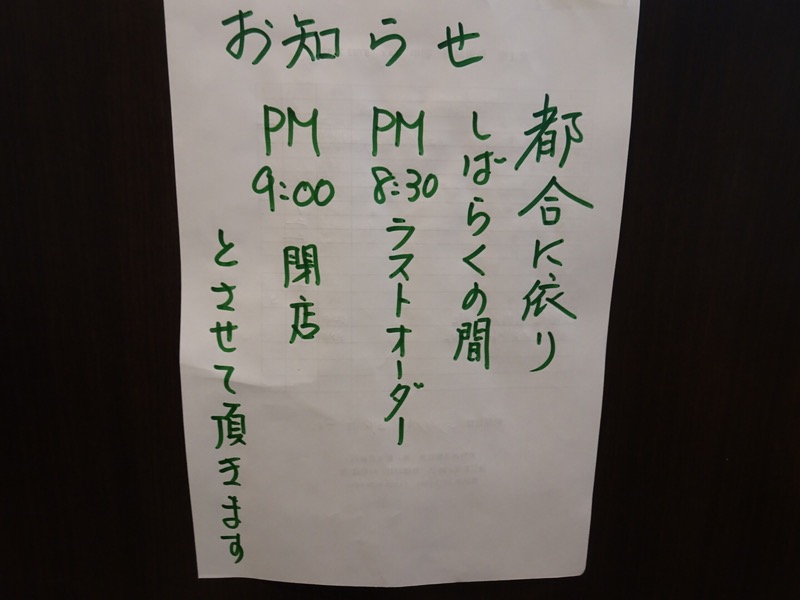 お知らせ
都合に依り
しばらくの間
PM 8:30 ラストオーダー
PM 9:00 閉店
とさせて頂きます